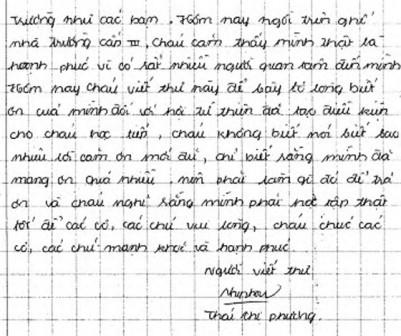 trường như các bạn. Hôm nay ngồi trên ghế
nhà trường cấp III, cháu cảm thấy mình thật là
hạnh phúc vì có rất nhiều người quan tâm đến mình
Hôm nay cháu viết thư này để bày tỏ lòng biết
ơn của mình đối với hội từ thiện đã tạo điều kiện
cho cháu học tiếp, cháu không biết nói biết bao
nhiêu lời cảm ơn mới đủ, chỉ biết rằng mình đã
mang ơn quá nhiều nên phải làm gì đó để trả
ơn và cháu nghĩ rằng mình phải học tập thật
tốt để các cô, các chú vui lòng, cháu chúc các
cô, các chú mạnh khoẻ và hạnh phúc.
Người viết thư
Thái thị phường.